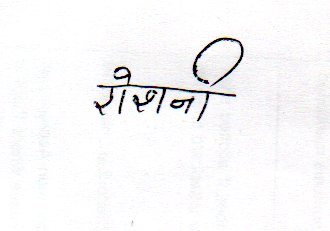 रोशनी